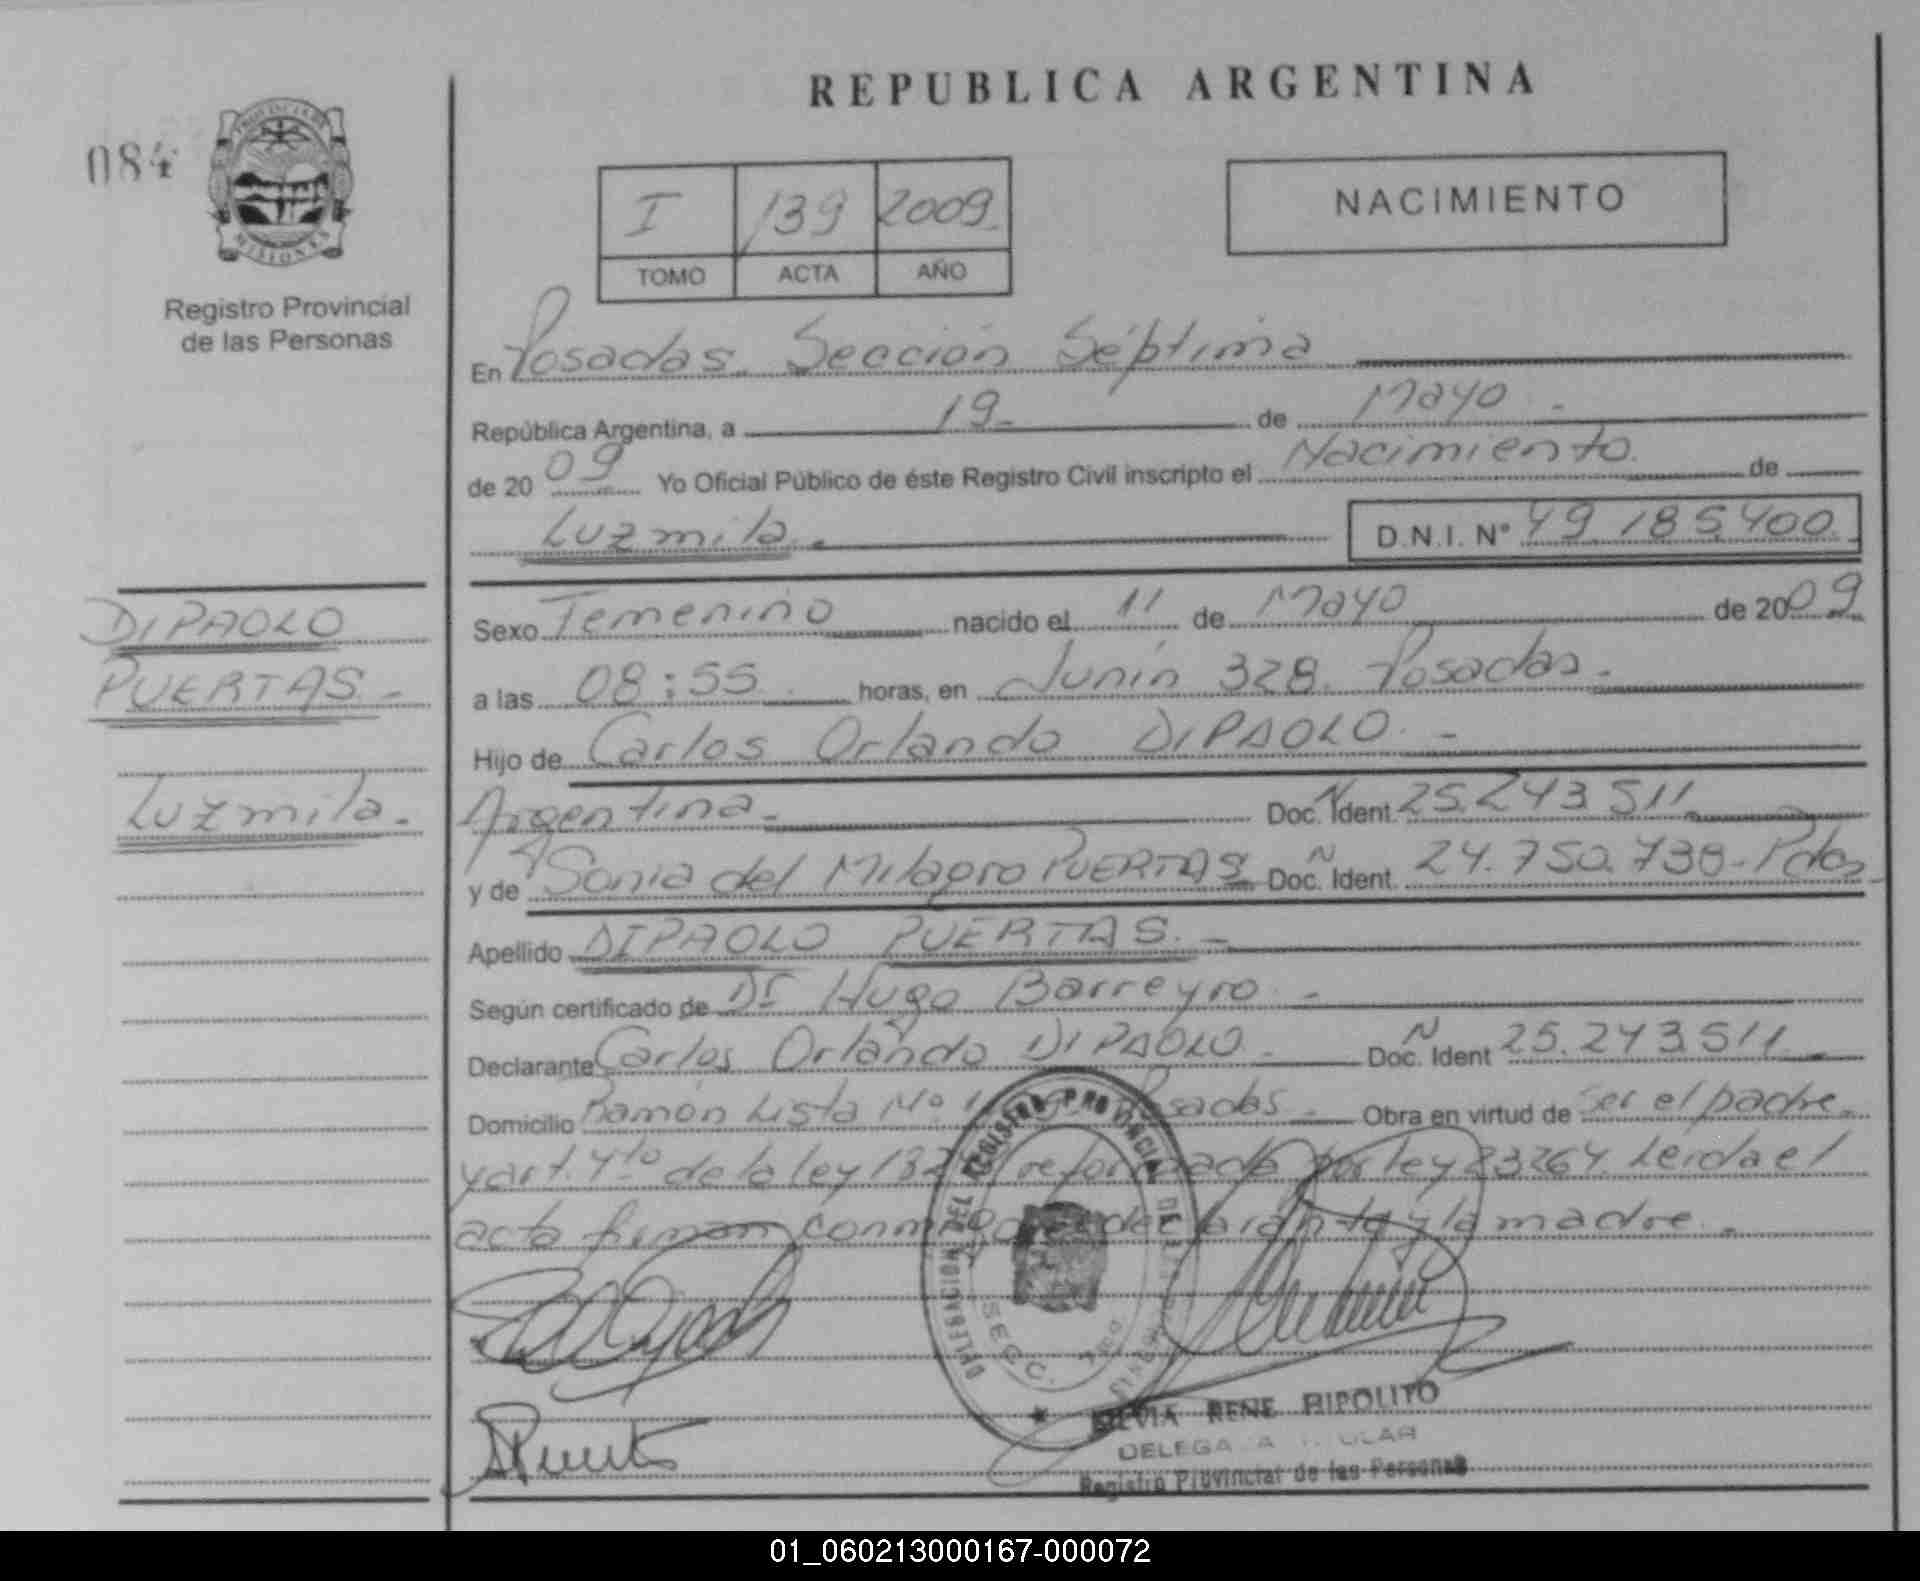 REPUBLICA ARGENTINA
084
PROVINCIA DE
MISIONES
Registro Provincial
de las Personas
I 139 2009
TOMO ACTA AÑO
NACIMIENTO
En Posadas. Sección Séptima
República Argentina, a 19 de Mayo
de 2009 Yo Oficial Público de éste Registro Civil inscripto el Nacimiento de
Luzmila. D.N.I. N° 49.185.400
DIPAOLO
PUERTAS
Luzmila.
Sexo Femenino nacido el 11 de Mayo de 2009
a las 08:55 horas, en Junín 328. Posadas.
Hijo de Carlos Orlando DIPAOLO.
Argentina. Doc. Ident. N 25.243.511
y de Sonia del Milagro PUERTAS Doc. Ident. N 24.750.738 - Pdas
Apellido DIPAOLO PUERTAS.
Según certificado de Dr Hugo Barreyro
Declarante Carlos Orlando DIPAOLO Doc. Ident N 25.243.511
Domicilio Ramón Lista Nº Posadas. Obra en virtud de Ser el padre
y art. 4to de la ley reformada por ley 23264. Leída el
acta firman declarante y la madre.
DELEGACION DEL REGISTRO PROVINCIAL DE LAS PERSONAS
SECC. 7
RENE RIPOLITO
Registro Provincial de las Personas
01_060213000167-000072